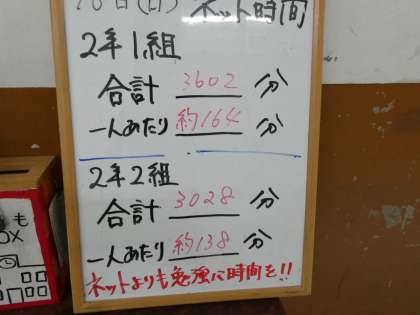 日(日) ネット時間
2年1組
合計 3602 分
一人あたり 約164 分
2年2組
合計 3028 分
一人あたり 約138 分
ネットよりも勉強に時間を!!
も
OX